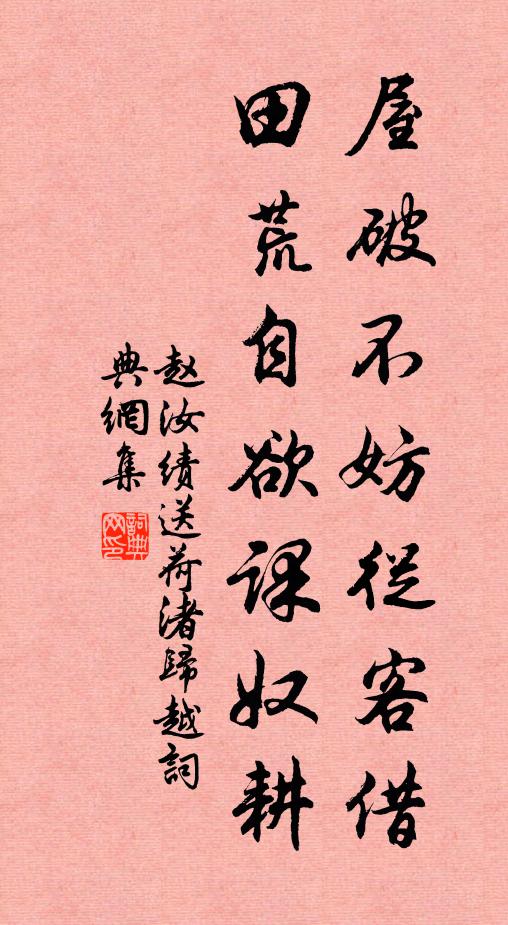 屋破不妨從客借
田荒自欲課奴耕
赵汝績送荷渚歸越詞
典網集
詞典網印